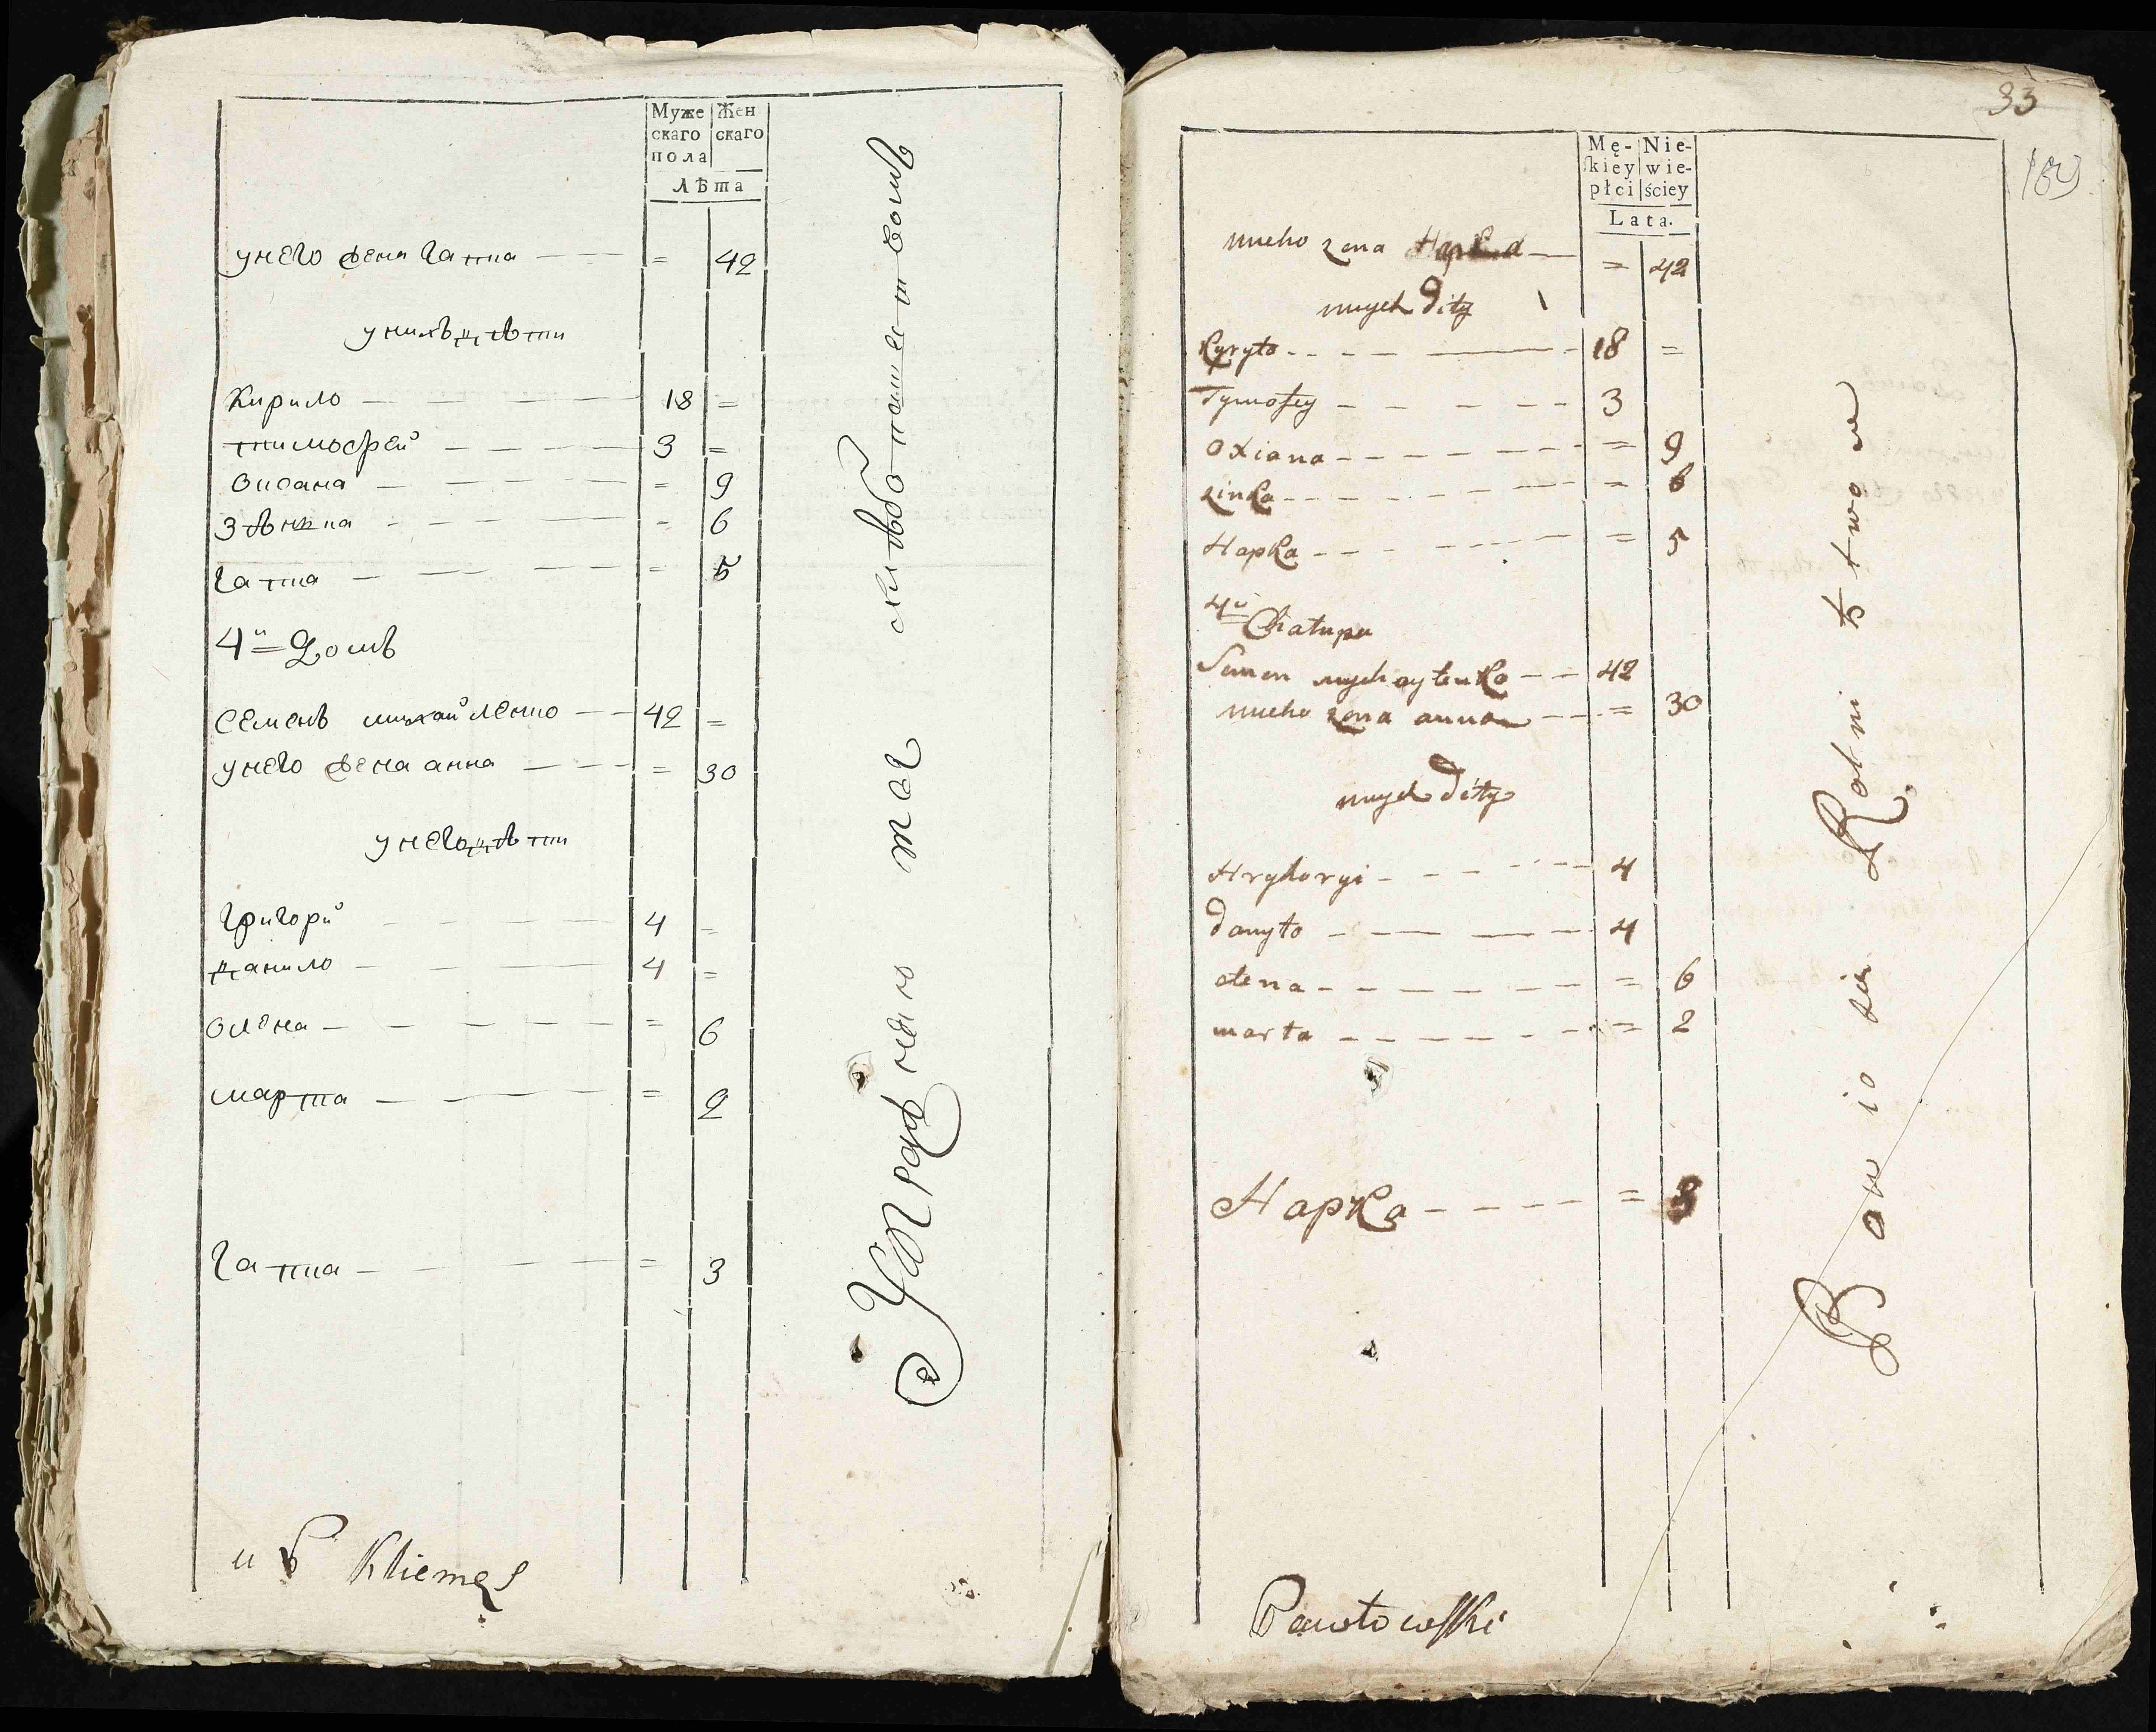 Муже Жен
скаго скаго
пола
Лѣта
унего жена гапка = 42
унихъ дѣти
Кирило 18 =
тимофей 3 =
Оксана = 9
Зѣнька = 6
гапка = 5
4й Домъ
Семенъ михайленко 42 =
унего жена анна = 30
унего дѣти
григорий 4 =
данило 4 =
Олена = 6
марта = 2
гапка = 3
Упражнѧютсѧ хлѣбопашествомъ
Kliemes
33
Mę- Nie-
skiey wie-
płci ściey
Lata.
nueho zona Hapka = 42
nuych dity
Kyryło 18 =
Tymofey 3
oxiana = 9
zinka = 6
Hapka = 5
4a Chałupa
Semen mychayłenko 42
nueho zona anna = 30
nuych dity
Hryhoryi 4
danyło 4
ołena = 6
marta = 2
Hapka = 3
Bawio się Rolnistwem
Pawłowski